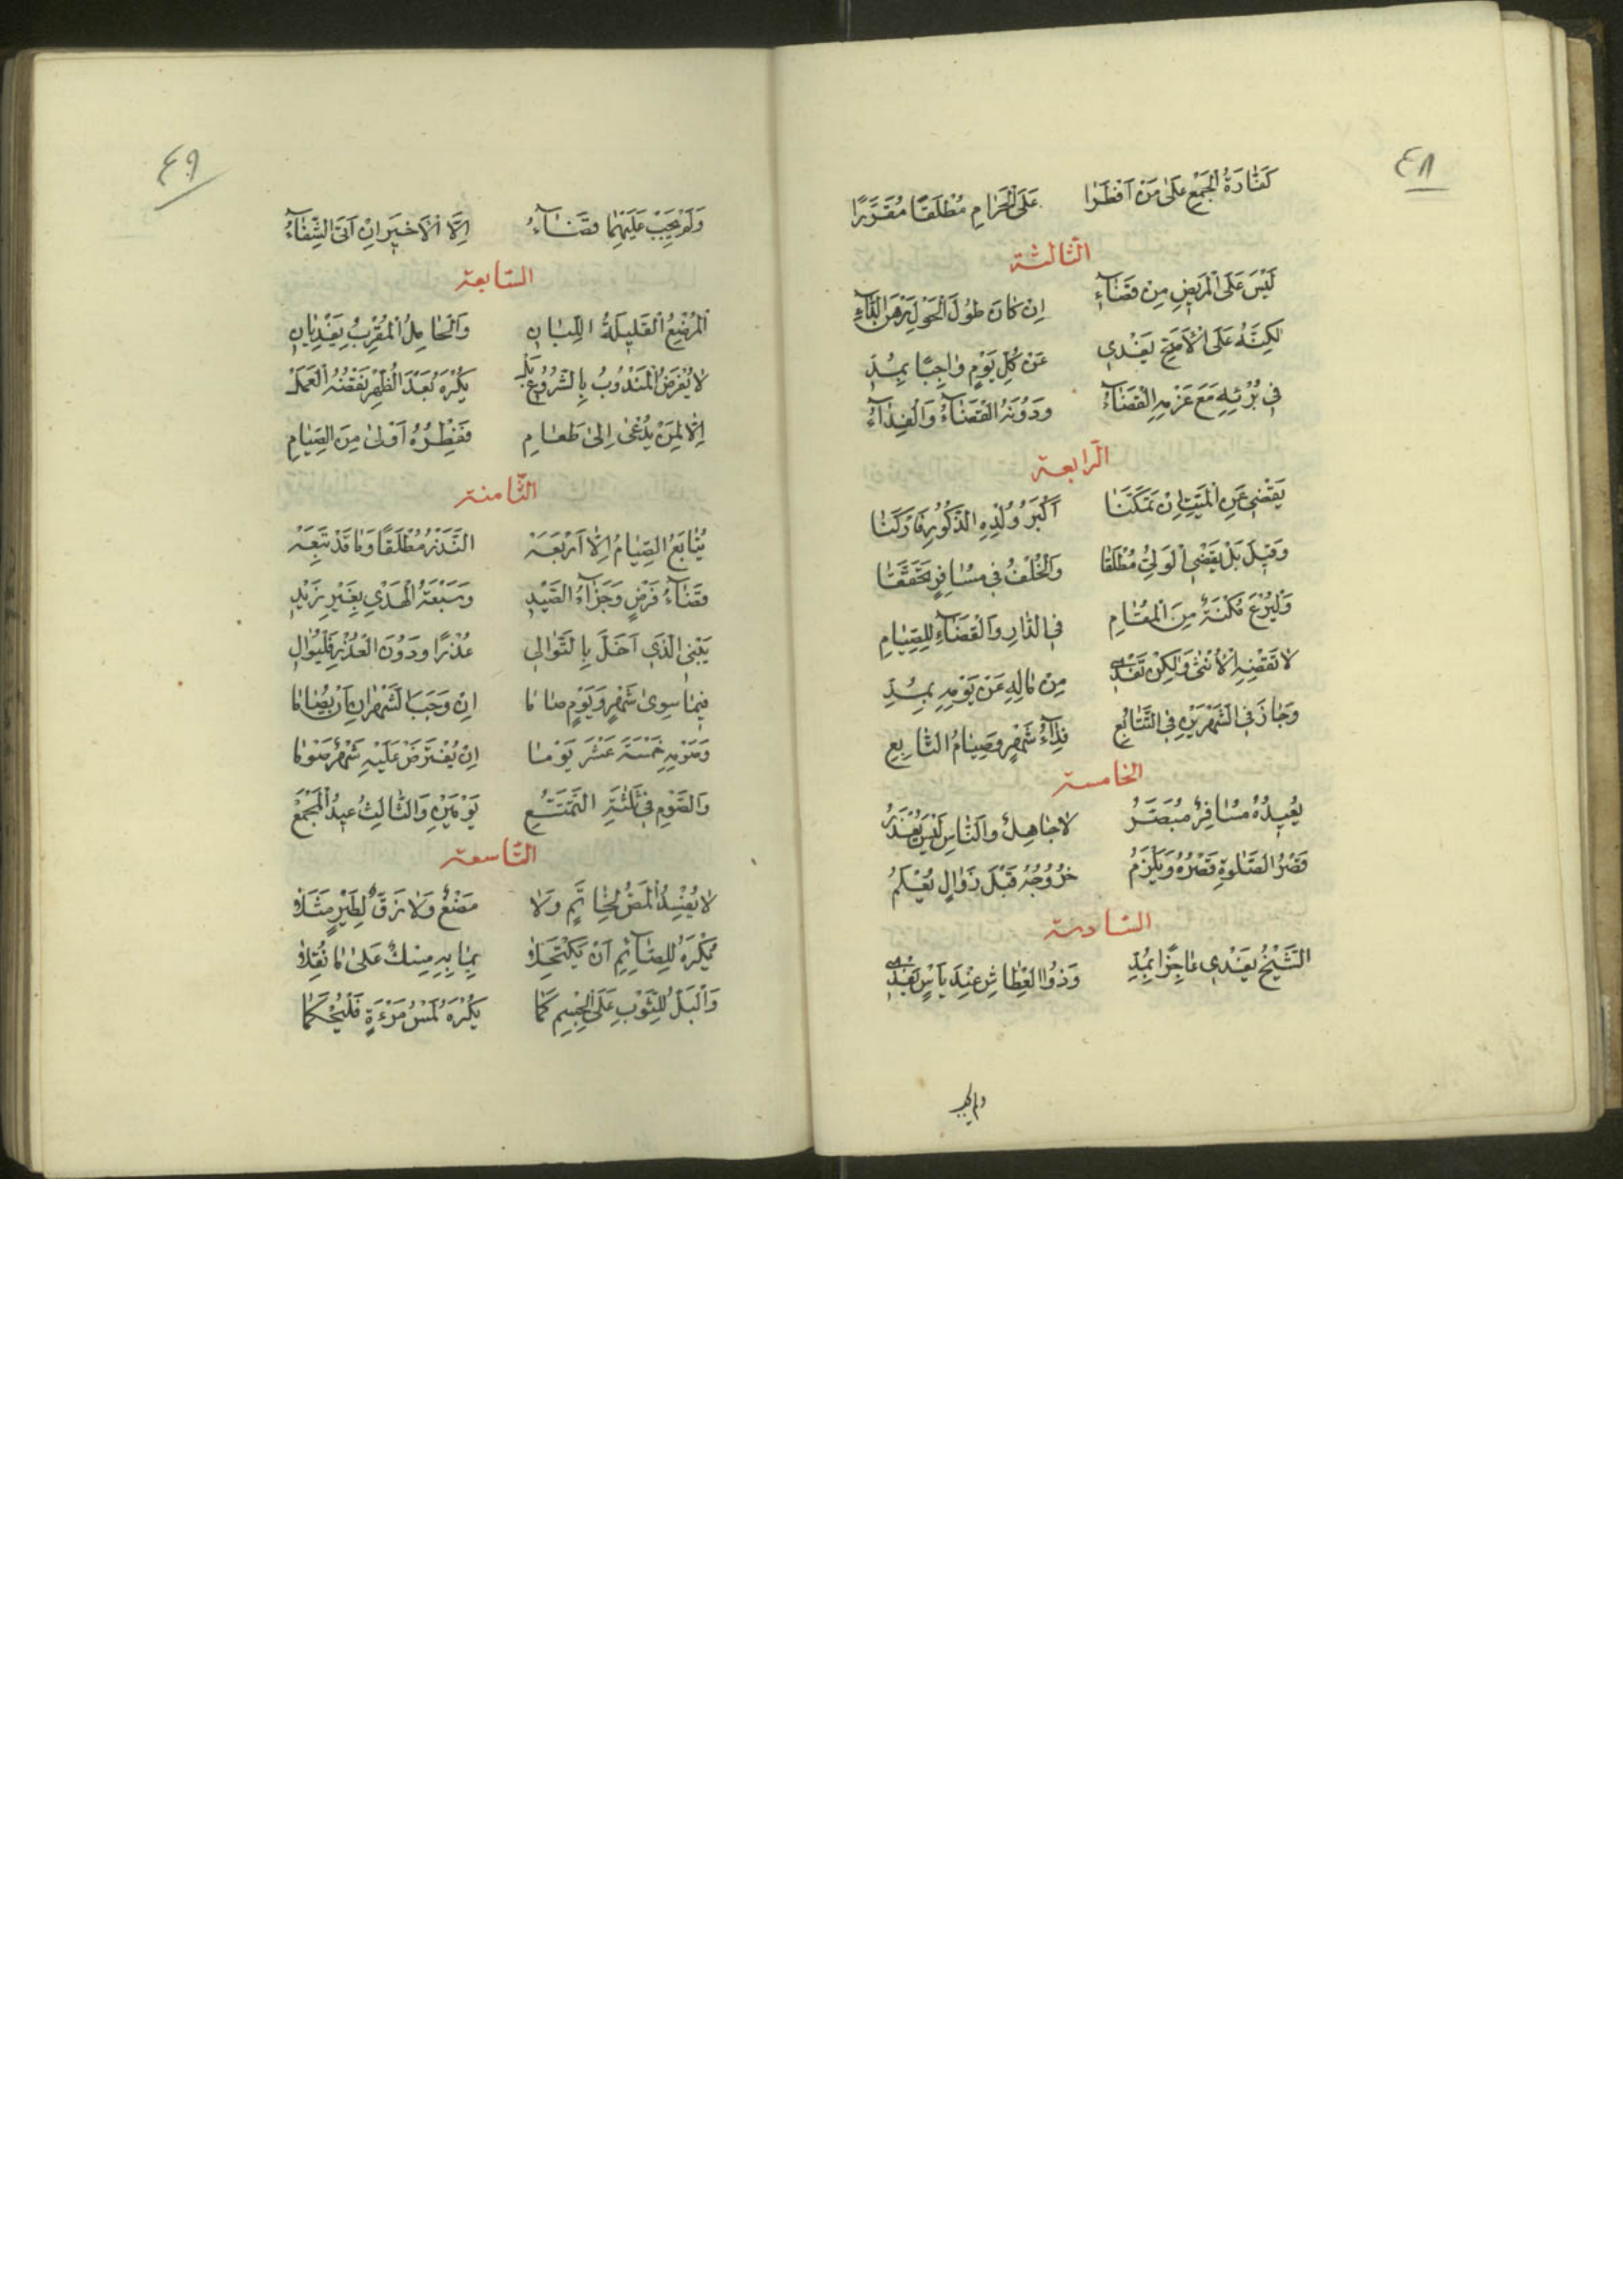 ٤٨
كَفَّارَةُ الْجَمْعِ عَلَى مَنْ اَفْطَرَا عَلَى الْحَرَامِ مُطْلَقًا مُقَرَّرًا
الثالثة
لَيْسَ عَلَى الْمَرِيضِ مِنْ قَضَآءِ اِنْ كَانَ طُولَ الْحَوْلِ رَهْنَ الدَّآءِ
لكِنَّهُ عَلَى الْاَصَحِّ يَفْدِي عَنْ كُلِّ يَوْمٍ وَاجِبًا بِمُدِّ
فِي بُرْئِهِ مَعَ عَزْمِهِ الْقَضَآءُ وَدُونَهُ الْقَضَآءُ وَالْفِدَآءُ
الرابعة
يَقْضِي عَنِ الْمَيِّتِ اِنْ تَمَكَّنَا اَكْبَرُ وُلْدِهِ الذُّكُورِ
وَقِيلَ بَلْ يَقْضِي الْوَلِيُّ مُطْلَقَا وَالْخُلْفُ فِي مُسَافِرٍ تَحَقَّقَا
وَلْيُرْعَ مُكْنَةٌ مِنَ الْمُقَامِ فِي الدَّارِ وَالْقَضَآءِ لِلصِّيَامِ
لَا تَقْضِهِ الْاُنْثَى وَلكِنْ تَفْدِي مِنْ مَالِهِ عَنْ يَوْمِهِ بِمُدِّ
وَجَازَ فِي الشَّهْرَيْنِ فِي التَّتَابُعِ فِدَآءُ شَهْرٍ وَصِيَامُ التَّابِعِ
الخامسة
يُعِيدُهُ مُسَافِرٌ مُبَصَّرُ لَا جَاهِلٌ وَالنَّاسِ لَيْسَ يُعْذَرُ
قَصْرُ الصَّلوةِ قَصْرُهُ وَيَلْزَمُ خُرُوجُهُ قَبْلَ زَوَالٍ يُعْلَمُ
السادسة
الشَّيْخُ يَفْدِي عَاجِزًا بِمُدِّ وَذُو الْعُطَاشِ عِنْدَ يَاْسٍ يَفْدِي
٤٩
وَلَمْ يَجِبْ عَلَيْهِمَا قَضَآءُ اِلَّا الْاَخِيرَ اِنْ اَتَى الشِّفَآءُ
السابعة
الْمُرْضِعُ الْقَلِيلَةُ اللِّبَانِ وَالْحَامِلُ الْمُقْرِبُ يَفْدِيَانِ
لَا يُفْرَضُ الْمَنْدُوبُ بِالشُّرُوعِ بَلْ يُكْرَهُ بَعْدَ الظُّهْرِ نَقْضُهُ الْعَمَلْ
اِلَّا لِمَنْ يُدْعَى اِلَى طَعَامِ فَفِطْرُهُ اَوْلَى مِنَ الصِّيَامِ
الثامنة
يُتَابَعُ الصِّيَامُ اِلَّا اَرْبَعَهْ النَّذْرُ مُطْلَقًا وَمَا قَدْ تَبِعَهْ
قَضَآءُ فَرْضٍ وَجَزَآءُ الصَّيْدِ وَسَبْعَةُ الْهَدْيِ بِغَيْرِ زَيْدِ
يَبْنِي الَّذِي اَخَلَّ بِالتَّوَالِي عُذْرًا وَدُونَ الْعُذْرِ فَلْيُوَالِ
فِيمَا سِوَى شَهْرٍ وَيَوْمٍ صَامَا اِنْ وَجَبَ الشَّهْرَانِ اَنْ يُصَامَا
وَصَوْمِهِ خَمْسَةَ عَشَرَ يَوْمًا اِنْ يُفْتَرَضْ عَلَيْهِ شَهْرٌ صَوْمَا
وَالصَّوْمِ فِي ثَلثَةِ التَّمَتُّعِ يَوْمَيْنِ وَالثَّالِثُ عِيدُ الْمَجْمَعِ
التاسعة
لَا يُفْسِدُ الْمَصُّ لِخَاتَمٍ وَلَا مَضْغٌ وَلَا زَقٌّ لِطَيْرٍ مَثَلَا
يُكْرَهُ لِلصَّآئِمِ اَنْ يَكْتَحِلَا بِمَا بِهِ مِسْكٌ عَلَى مَا نُقِلَا
وَالْبَلُّ لِلثَّوْبِ عَلَى الْجِسْمِ كَمَا يُكْرَهُ لَمْسُ مَرْءَةٍ فَلْيُحْكَمَا